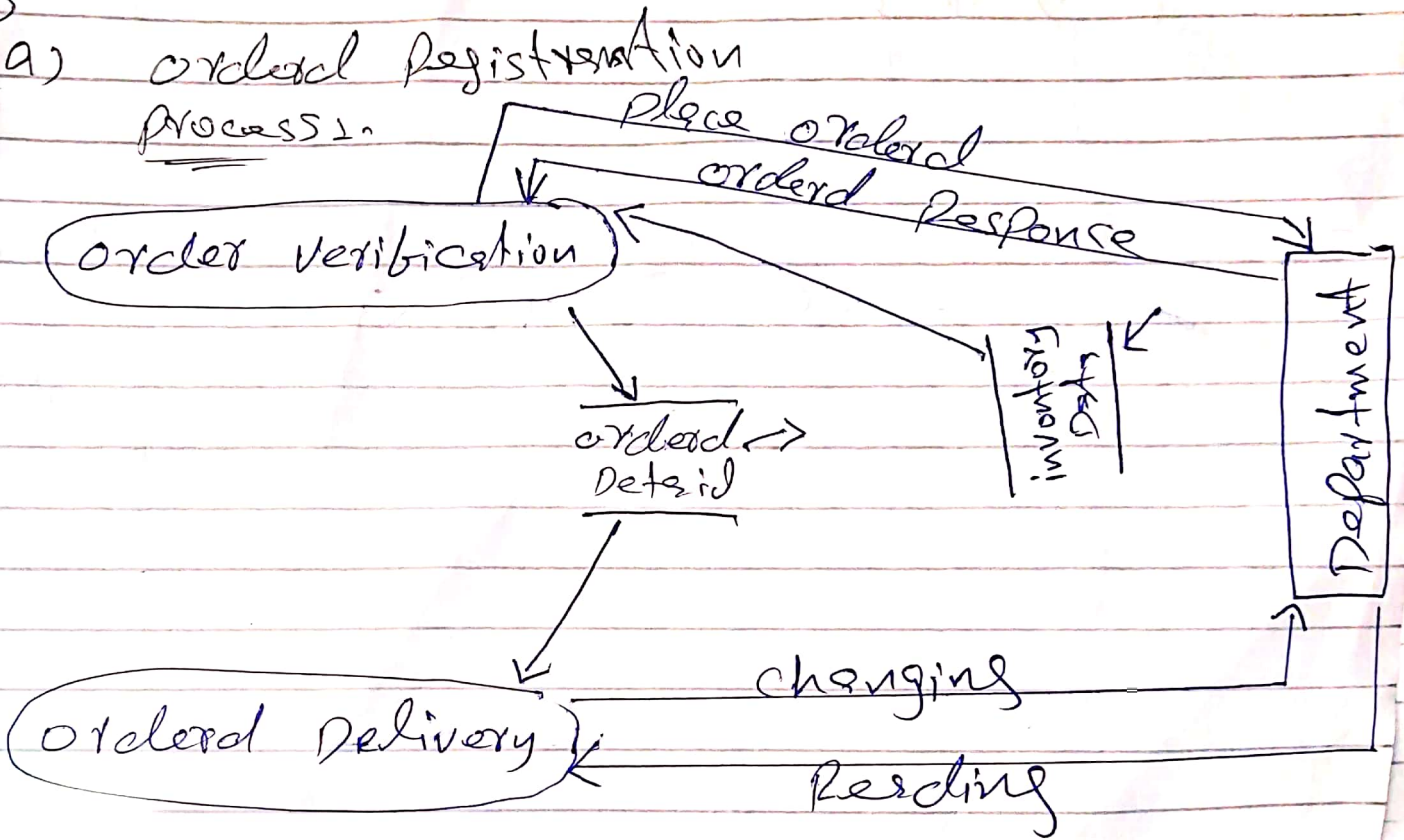 a) orderd Registration
process:-
place orderd
orderd Response
order verification
inventory
Data
Department
orderd
Detaid
changing
orderd Delivery
Reading